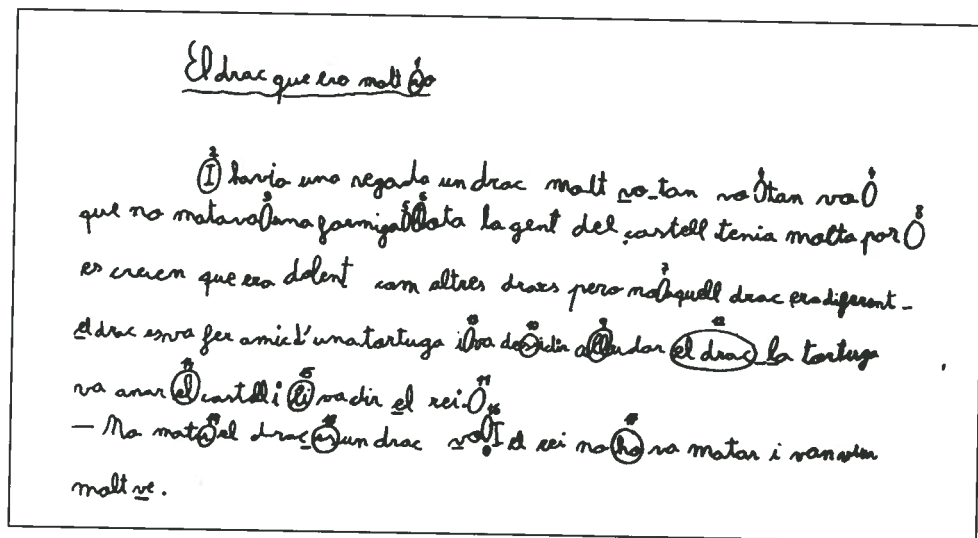 El drac que era molt vo
I havia una vegada un drac molt vo tan vo tan vo
que no matava una formiga tota la gent del castell tenia molta por
es creien que era dolent com altres dracs pero no aquell drac era diferent
el drac es va fer amic d'una tortuga i va desidir alludar el drac la tortuga
va anar el castell i li va dir el rei.
— No mates el drac es un drac vo I el rei no ho va matar i van viure
molt ve.